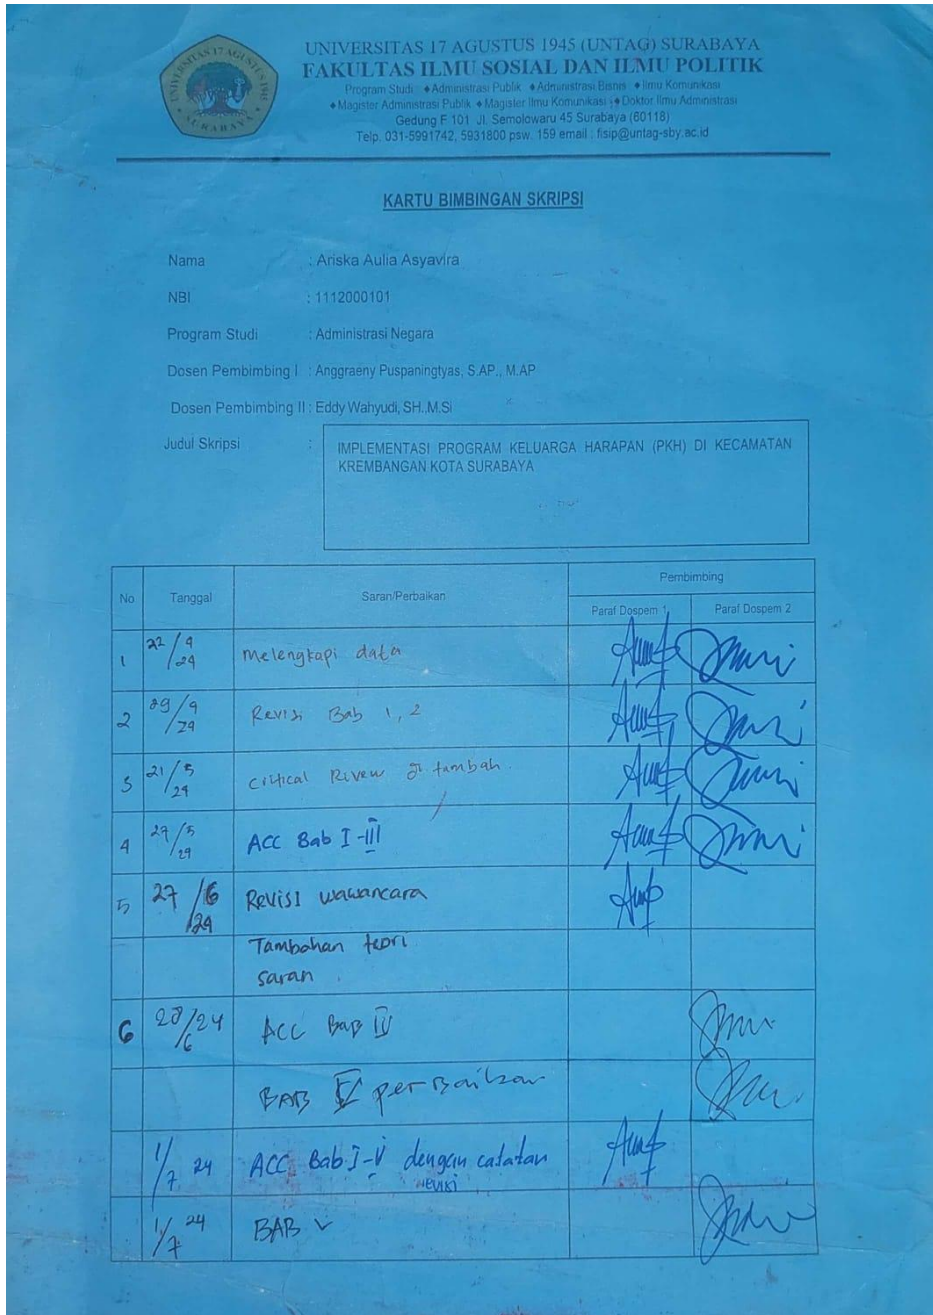 UNIVERSITAS 17 AGUSTUS 1945
SURABAYA
UNIVERSITAS 17 AGUSTUS 1945 (UNTAG) SURABAYA
FAKULTAS ILMU SOSIAL DAN ILMU POLITIK
Program Studi : ◆Administrasi Publik ◆Administrasi Bisnis ◆Ilmu Komunikasi
◆Magister Administrasi Publik ◆Magister Ilmu Komunikasi ◆Doktor Ilmu Administrasi
Gedung F 101 Jl. Semolowaru 45 Surabaya (60118)
Telp. 031-5991742, 5931800 psw. 159 email : fisip@untag-sby.ac.id
KARTU BIMBINGAN SKRIPSI
Nama : Ariska Aulia Asyavira
NBI : 1112000101
Program Studi : Administrasi Negara
Dosen Pembimbing I : Anggraeny Puspaningtyas, S.AP., M.AP
Dosen Pembimbing II : Eddy Wahyudi, SH.,M.Si
Judul Skripsi : IMPLEMENTASI PROGRAM KELUARGA HARAPAN (PKH) DI KECAMATAN
KREMBANGAN KOTA SURABAYA
No Tanggal Saran/Perbaikan Pembimbing
Paraf Dospem 1 Paraf Dospem 2
1 22/4 24 Melengkapi data
2 29/4 24 Revisi Bab 1, 2
3 21/5 24 Critical Rivew di tambah
4 27/5 24 ACC Bab I-III
5 27/6 24 Revisi wawancara
Tambahan teori
saran
6 28/6 24 ACC Bab IV
BAB perbaikan
1/7 24 ACC Bab I-V dengan catatan
revisi
1/7 24 BAB V